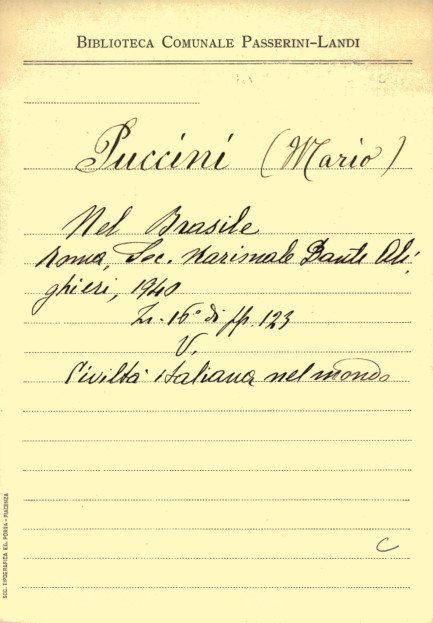 BIBLIOTECA COMUNALE PASSERINI-LANDI
Puccini (Mario)
Nel Brasile
Roma, Soc. Nazionale Dante Ali,
ghieri, 1940
In-16° di pp. 123
V.
Civiltà italiana nel mondo
C
SOC. TIPOGRAFICA ED. PENSA - PIACENZA